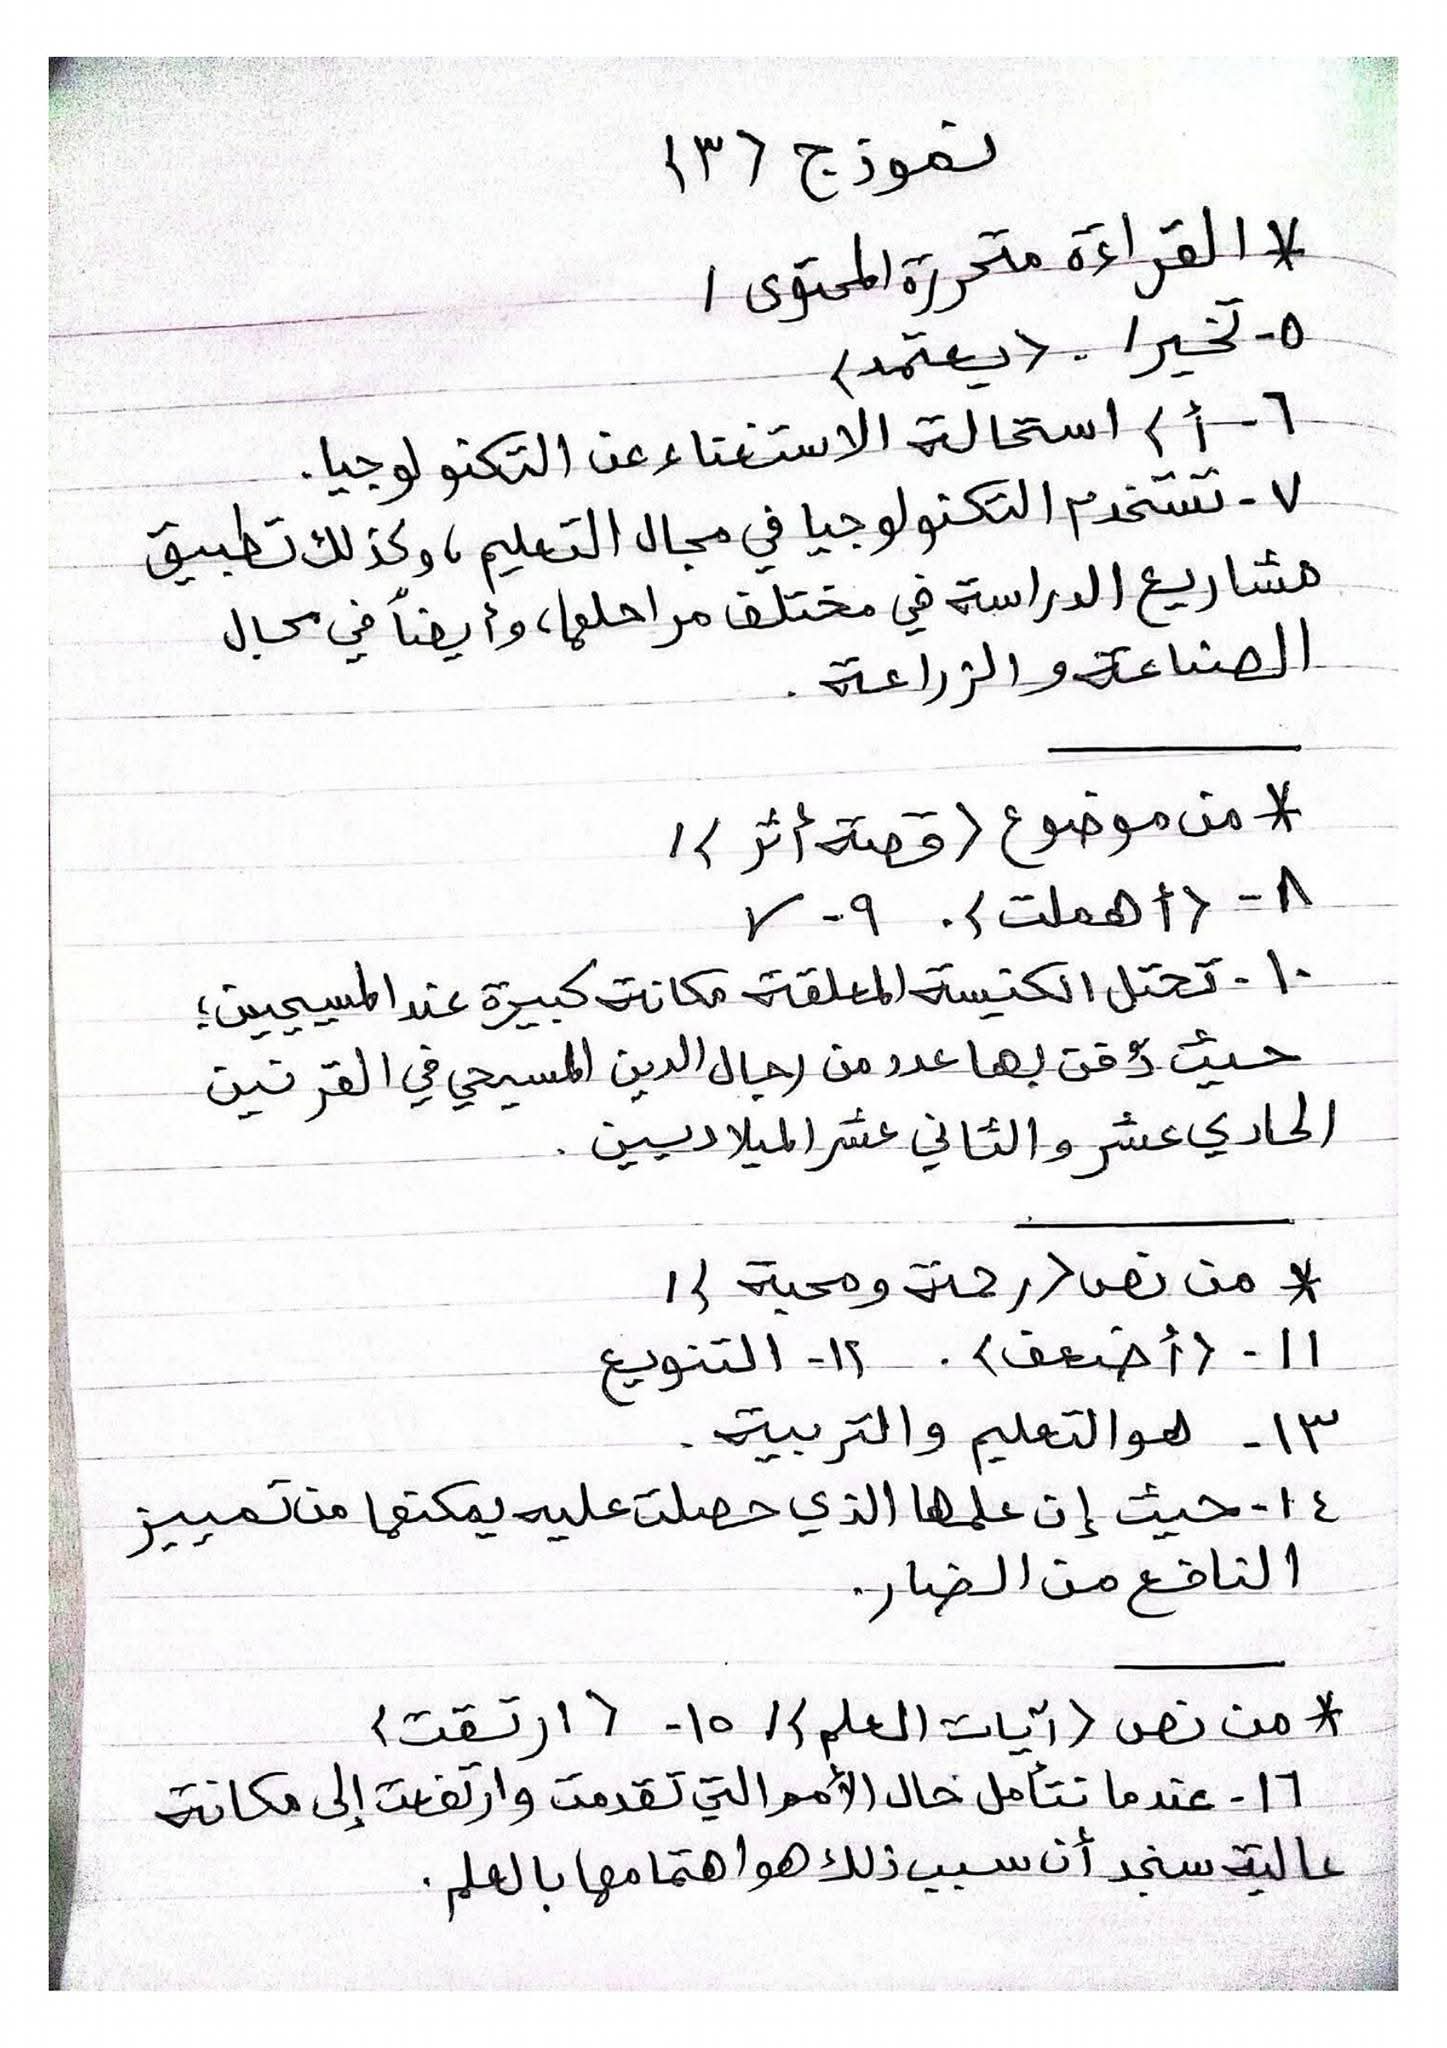 نموذج (٣)
* القراءة متحررة المحتوى /
٥- تخير / . (يعتمد)
٦- أ) استحالة الاستغناء عن التكنولوجيا.
٧- تستخدم التكنولوجيا في مجال التعليم، وكذلك تطبيق
مشاريع الدراسة في مختلف مراحلها، وأيضاً في مجال
الصناعة والزراعة .
* من موضوع (قصة أثر) /
٨- (أهملت) . ٩- ✓
١٠- تحتل الكنيسة المعلقة مكانة كبيرة عند المسيحيين؛
حيث دُفن بها عدد من رجال الدين المسيحي في القرنين
الحادي عشر والثاني عشر الميلاديين .
* من نص (رحمة ومحبة) /
١١- (أضعف) . ١٢- التنويع
١٣- هو التعليم والتربية .
١٤- حيث إن علمها الذي حصلت عليه يمكنها من تمييز
النافع من الضار.
* من نص (آيات العلم) / ١٥- (ارتقت)
١٦- عندما نتأمل حال الأمم التي تقدمت وارتفعت إلى مكانة
عالية سنجد أن سبب ذلك هو اهتمامها بالعلم .